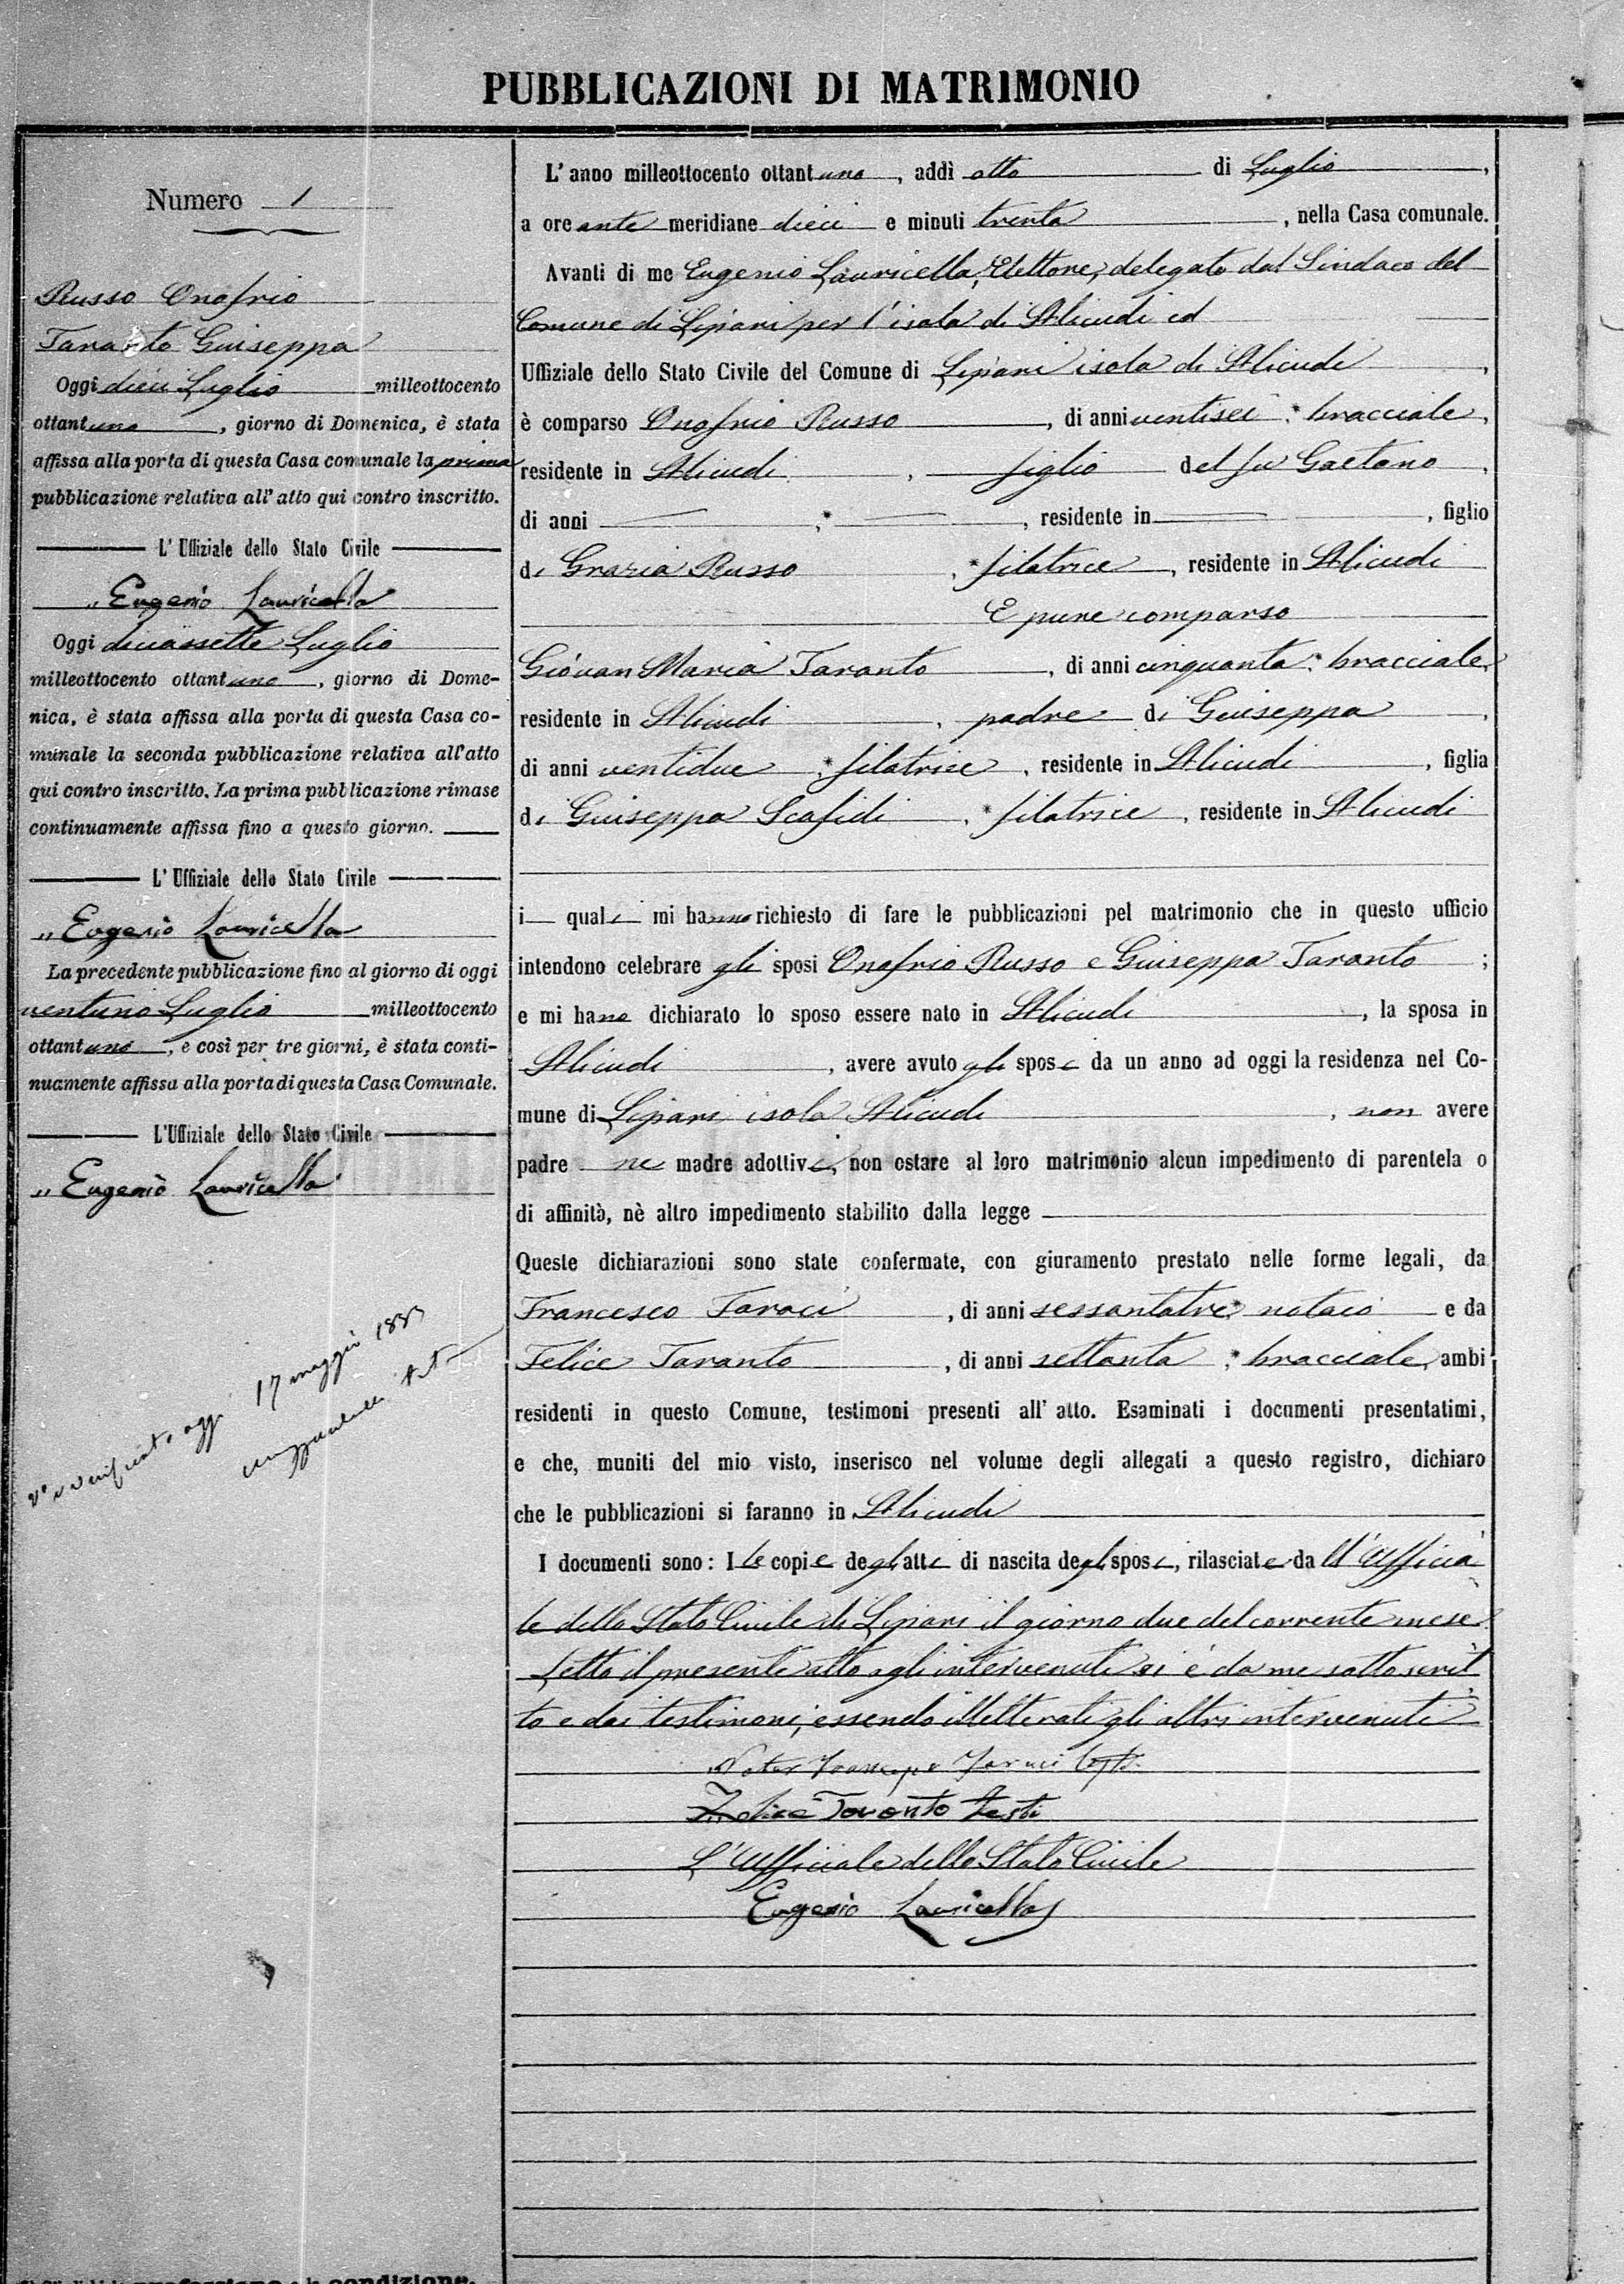 PUBBLICAZIONI DI MATRIMONIO
Numero 1
Russo Onofrio
Taranto Giuseppa
Oggi dieci Luglio milleottocento
ottantuno, giorno di Domenica, è stata
affissa alla porta di questa Casa comunale la prima
pubblicazione relativa all'atto qui contro inscritto.
L'Uffiziale dello Stato Civile
Eugenio Lauricella
Oggi diciassette Luglio
milleottocento ottantuno, giorno di Dome-
nica, è stata affissa alla porta di questa Casa co-
munale la seconda pubblicazione relativa all'atto
qui contro inscritto. La prima pubblicazione rimase
continuamente affissa fino a questo giorno.
L'Uffiziale dello Stato Civile
Eugenio Lauricella
La precedente pubblicazione fino al giorno di oggi
ventuno Luglio milleottocento
ottantuno, e così per tre giorni, è stata conti-
nuamente affissa alla porta di questa Casa Comunale.
L'Uffiziale dello Stato Civile
Eugenio Lauricella
17 maggio
L'anno milleottocento ottantuno, addì otto di Luglio,
a ore ante meridiane dieci e minuti trenta, nella Casa comunale.
Avanti di me Eugenio Lauricella, Elettore, delegato dal Sindaco del
Comune di Lipari per l'isola di Alicudi ed
Uffiziale dello Stato Civile del Comune di Lipari isola di Alicudi,
è comparso Onofrio Russo, di anni ventisei, * bracciale,
residente in Alicudi, figlio del fu Gaetano,
di anni , * , residente in , figlio
di Grazia Russo, * filatrice, residente in Alicudi
E pure comparso
Giovan Maria Taranto, di anni cinquanta, * bracciale,
residente in Alicudi, padre di Giuseppa,
di anni ventidue, * filatrice, residente in Alicudi, figlia
di Giuseppa Scafidi, * filatrice, residente in Alicudi
i quali mi hanno richiesto di fare le pubblicazioni pel matrimonio che in questo ufficio
intendono celebrare gli sposi Onofrio Russo e Giuseppa Taranto;
e mi hano dichiarato lo sposo essere nato in Alicudi, la sposa in
Alicudi, avere avuto gli sposi da un anno ad oggi la residenza nel Co-
mune di Lipari isola Alicudi, non avere
padre ne madre adottivi, non ostare al loro matrimonio alcun impedimento di parentela o
di affinità, nè altro impedimento stabilito dalla legge
Queste dichiarazioni sono state confermate, con giuramento prestato nelle forme legali, da
Francesco Faraci, di anni sessantatre, * notaio e da
Felice Taranto, di anni settanta, * bracciale, ambi
residenti in questo Comune, testimoni presenti all'atto. Esaminati i documenti presentatimi,
e che, muniti del mio visto, inserisco nel volume degli allegati a questo registro, dichiaro
che le pubblicazioni si faranno in Alicudi
I documenti sono: 1 Le copie degli atti di nascita degli sposi, rilasciate da ll'Officia
le dello Stato Civile di Lipari il giorno due del corrente mese
Letto il presente atto agli intervenuti si è da me sottoscrit
to e dai testimoni, essendo illetterati gli altri intervenuti
Felice Taranto testi
L'Ufficiale dello Stato Civile
Eugenio Lauricella
condizione.